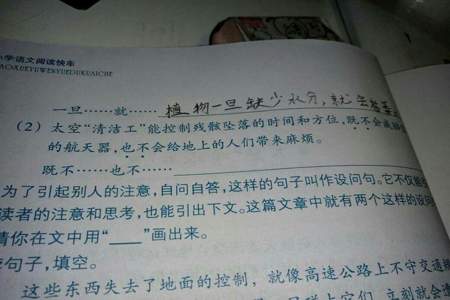 小学语文阅读快车
一旦……就…… 植物一旦缺少水分，就会
(2) 太空“清洁工”能控制残骸坠落的时间和方位，既不会
的航天器，也不会给地上的人们带来麻烦。
既不……也不……
为了引起别人的注意，自问自答，这样的句子叫作设问句。它不仅能
读者的注意和思考，也能引出下文。这篇文章中就有两个这样的设问
请你在文中用“___”画出来。
句子，填空。
这些东西失去了地面的控制，就像高速公路上不守交通
立刻就会